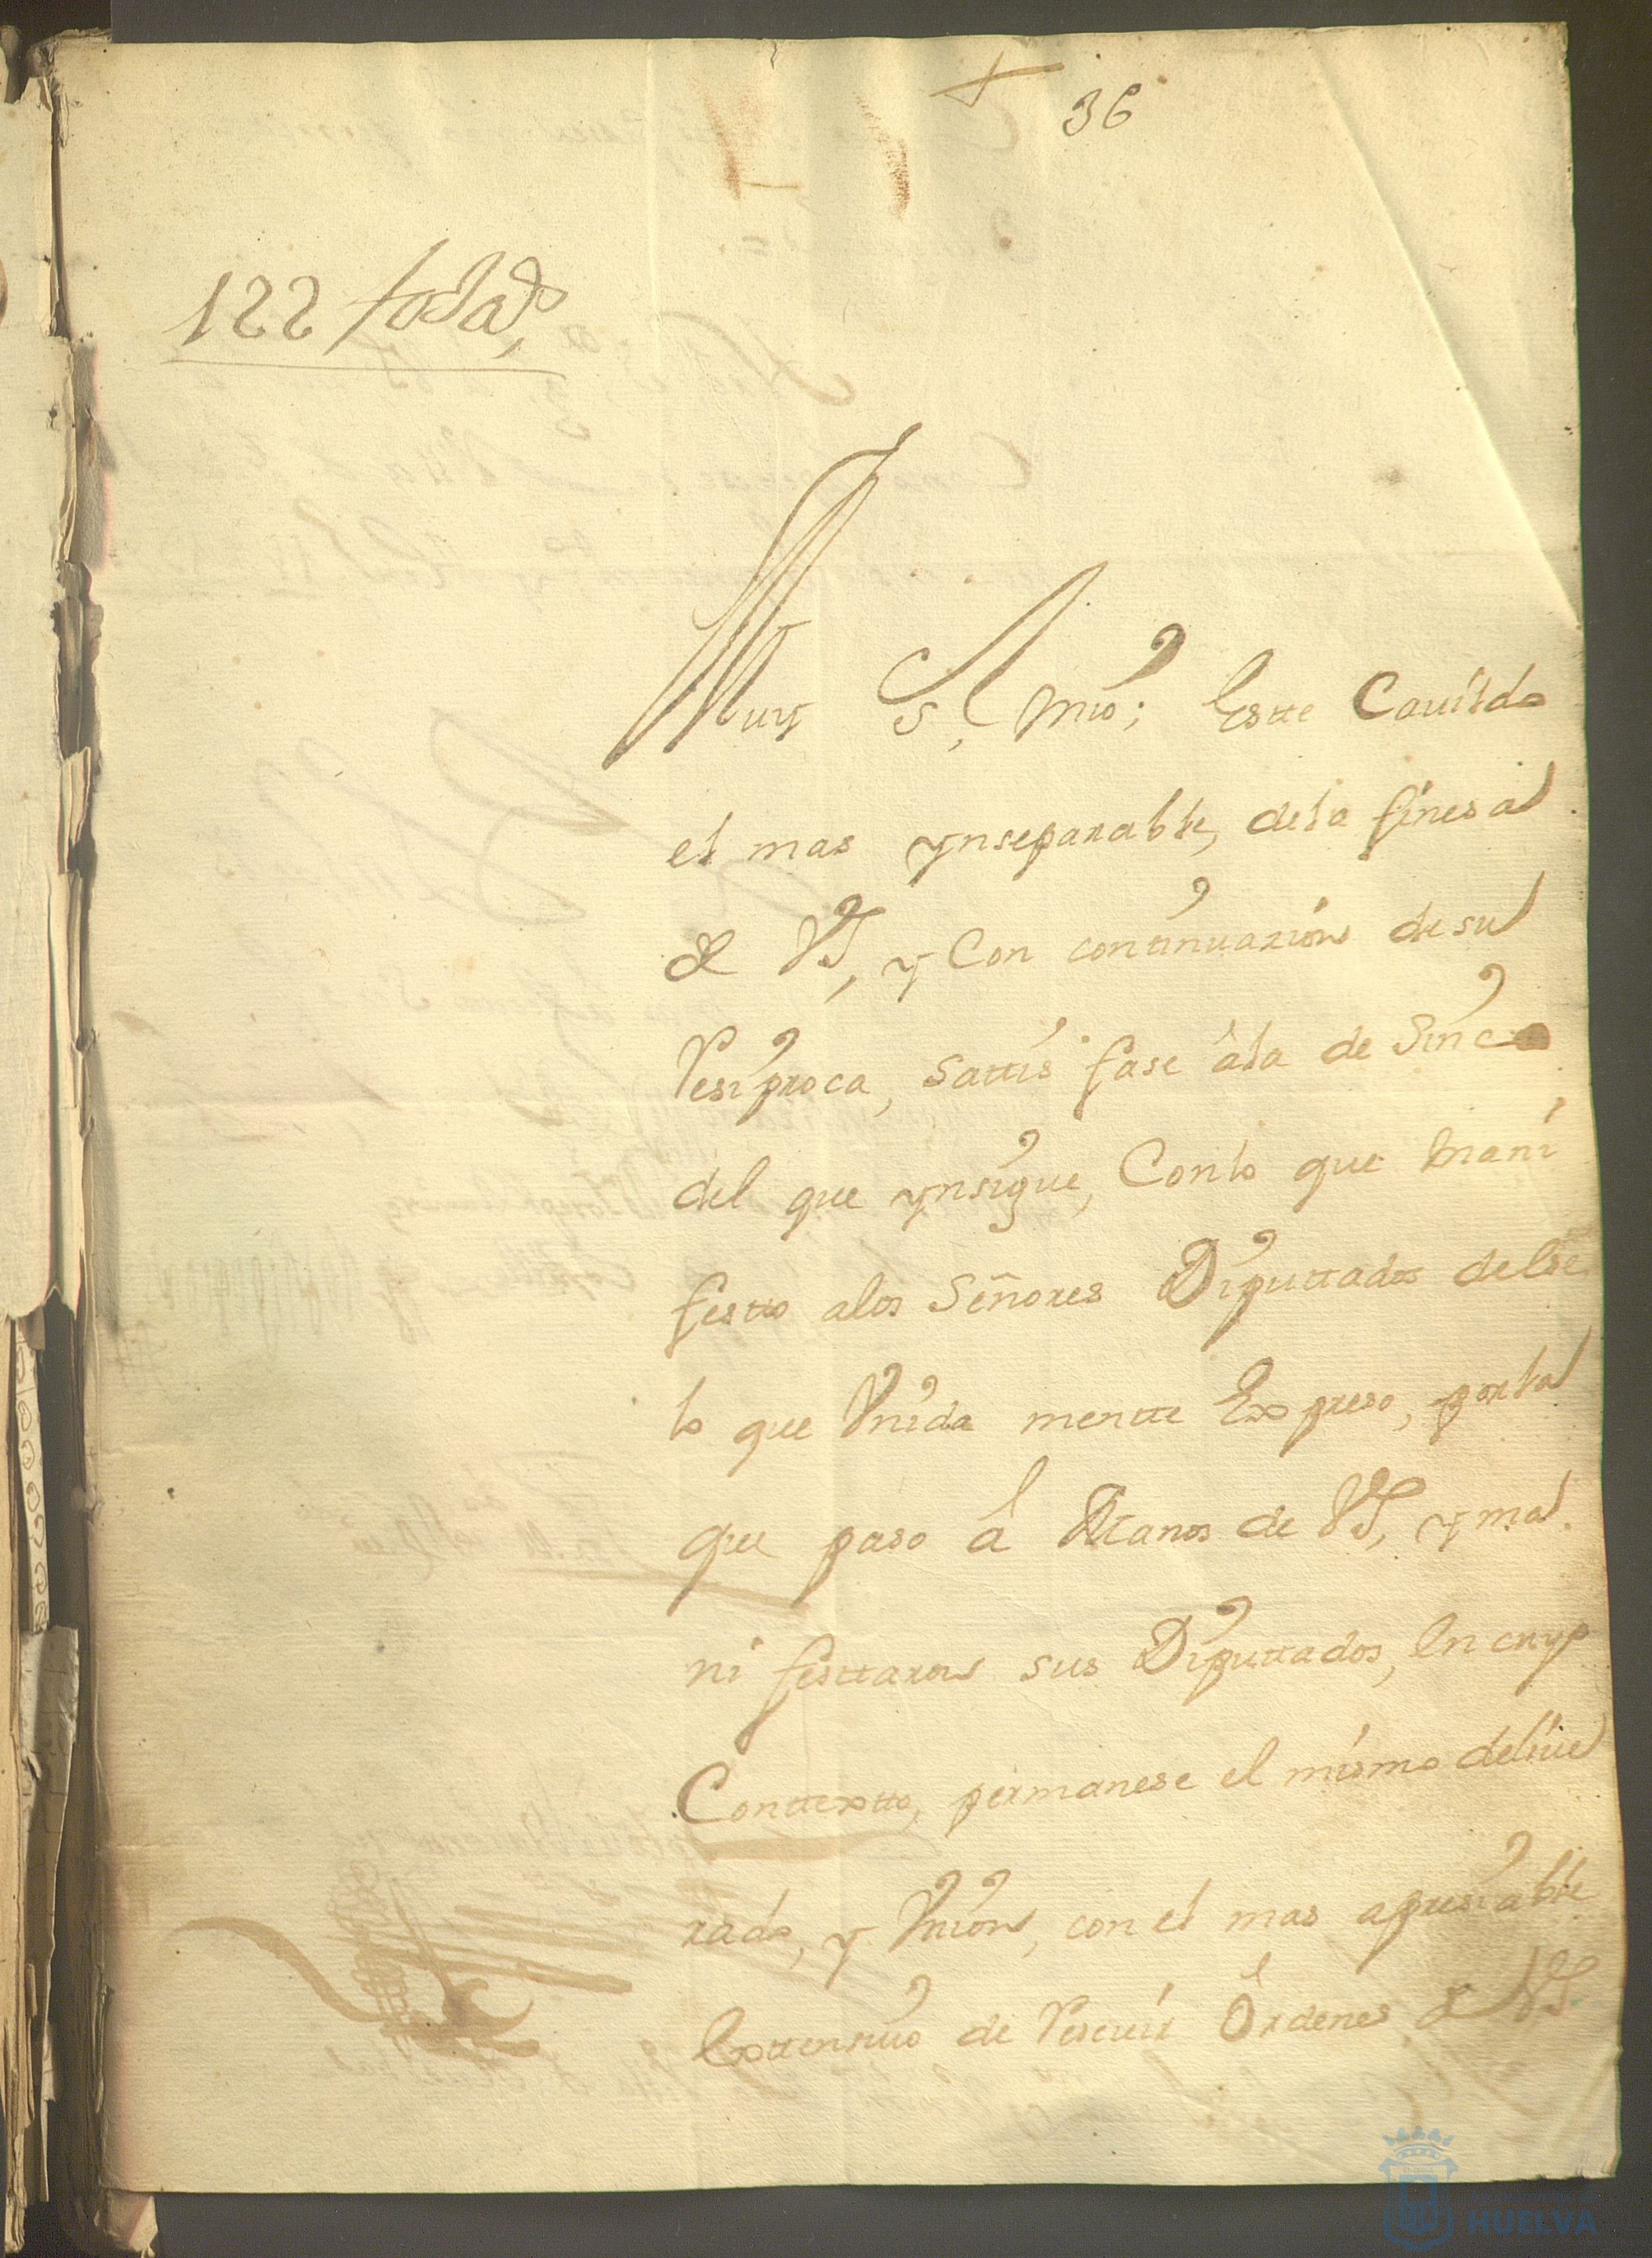 +
36
122 foxas
Muy S. mio; Este Cauildo
el mas ynseparable, dela finesa
de VS, y Con continuazion de su
Resiproca, sattisfase âla de Sinco
del que ynsigue, Conlo que mani
festto alos Señores Diputtados de
lo que Vnida mentte Expreso, porla
que paso â Manos de VS, y ma
ni festtaron sus Diputtados, En cuyo
Conttextto, permanese el mismo deliue
rado, y Vnion, con el mas apresiable
Exttensiuo de Reseuir Ôrdenes de VS
HUELVA